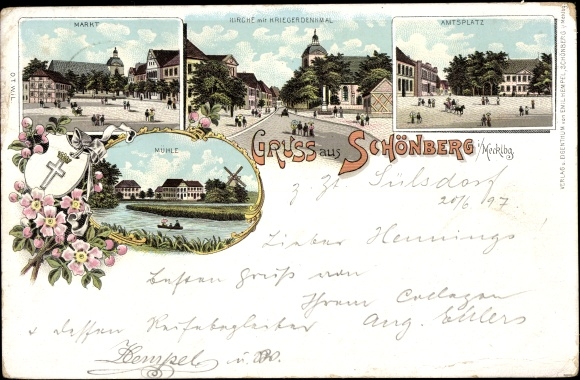 MARKT
KIRCHE mit KRIEGERDENKMAL
AMTSPLATZ
MÜHLE
GRUSS aus SCHÖNBERG i/Mecklbg.
VERLAG u. EIGENTHUM von EMIL HEMPEL, SCHÖNBERG i/Mecklbg.
z. Zt. Sülsdorf
20/6 97
Lieber Hennings
besten Gruß von
Ihrem Collegen
u dessen Reisebegleiter Aug. Ehlers
Hempel u.